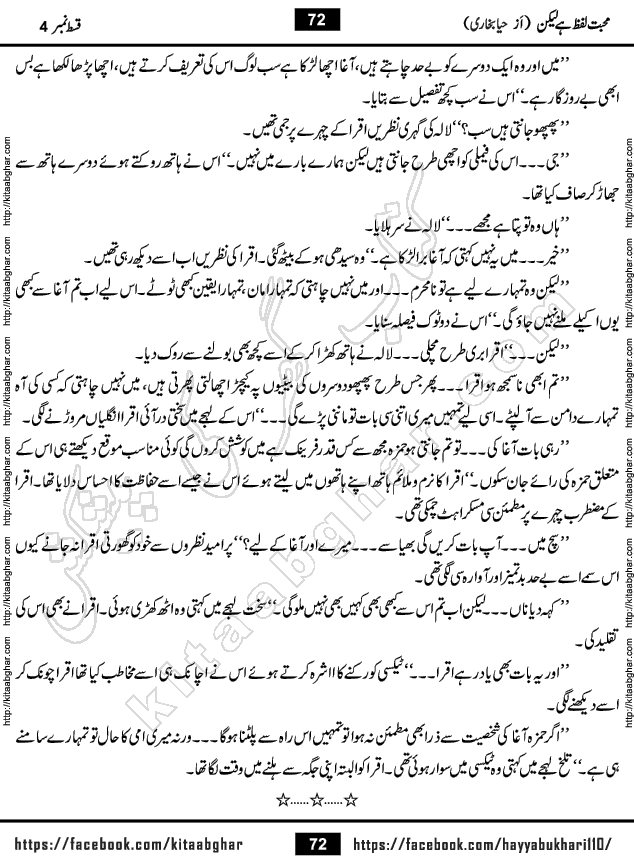 محبت لفظ ہے لیکن (از حیا بخاری)
72
قسط نمبر 4
’’میں اور وہ ایک دوسرے کو بے حد چاہتے ہیں، آغا اچھا لڑکا ہے سب لوگ اس کی تعریف کرتے ہیں، اچھا پڑھا لکھا ہے بس
ابھی بے روزگار ہے۔‘‘ اس نے سب کچھ تفصیل سے بتایا۔
’’پھپھو جانتی ہیں سب؟‘‘ لالہ کی گہری نظریں اقرا کے چہرے پر جمی تھیں۔
’’جی۔۔۔ اس کی فیملی کو اچھی طرح جانتی ہیں لیکن ہمارے بارے میں نہیں۔‘‘ اس نے ہاتھ روکتے ہوئے دوسرے ہاتھ سے
جھاڑ کر صاف کیا تھا۔
’’ہاں وہ تو پتا ہے مجھے۔۔۔‘‘ لالہ نے سر ہلایا۔
’’خیر۔۔۔ میں یہ نہیں کہتی کہ آغا برا لڑکا ہے۔‘‘ وہ سیدھی ہو کے بیٹھ گئی۔ اقرا کی نظریں اب اسے دیکھ رہی تھیں۔
’’لیکن وہ تمہارے لیے ہے تو نامحرم۔۔۔ اور میں نہیں چاہتی کہ تمہارا مان، تمہارا یقین کبھی ٹوٹے۔ اس لیے اب تم آغا سے کبھی
یوں اکیلے ملنے نہیں جاؤ گی۔‘‘ اس نے دو ٹوک فیصلہ سنایا۔
’’لیکن۔۔۔‘‘ اقرا بری طرح مچلی۔۔۔ لالہ نے ہاتھ کھڑا کر کے اسے کچھ بھی بولنے سے روک دیا۔
’’تم ابھی ناسمجھ ہو اقرا۔۔۔ پھر جس طرح پھپھو دوسروں کی بیٹیوں پہ کیچڑ اچھالتی پھرتی ہیں، میں نہیں چاہتی کہ کسی کی آہ
تمہارے دامن سے آ لپٹے۔ اسی لیے تمہیں میری اتنی سی بات تو ماننی پڑے گی۔۔۔‘‘ اس کے لہجے میں سختی در آئی اقرا انگلیاں مروڑنے لگی۔
’’رہی بات آغا کی۔۔۔ تو تم جانتی ہو حمزہ مجھ سے کس قدر فرینک ہے میں کوشش کروں گی کوئی مناسب موقع دیکھتے ہی اس کے
متعلق حمزہ کی رائے جان سکوں۔‘‘ اقرا کا نرم و ملائم ہاتھ اپنے ہاتھوں میں لیتے ہوئے اس نے جیسے اسے حفاظت کا احساس دلایا تھا۔ اقرا
کے مضطرب چہرے پر مطمئن سی مسکراہٹ چمکی تھی۔
’’سچ میں۔۔۔ آپ بات کریں گی بھیا سے۔۔۔ میرے اور آغا کے لیے؟‘‘ پر امید نظروں سے خود کو گھورتی اقرا نہ جانے کیوں
اس سمے اسے بے حد بدتمیز اور آوارہ سی لگی تھی۔
’’کہہ دیا ناں۔۔۔ لیکن اب تم اس سے کبھی بھی کہیں بھی نہیں ملو گی۔‘‘ سخت لہجے میں کہتی وہ اٹھ کھڑی ہوئی۔ اقرا نے بھی اس کی
تقلید کی۔
’’اور یہ بات بھی یاد رہے اقرا۔۔۔‘‘ ٹیکسی کو رکنے کا اشرہ کرتے ہوئے اس نے اچانک ہی اسے مخاطب کیا تھا اقرا چونک کر
اسے دیکھنے لگی۔
’’اگر حمزہ آغا کی شخصیت سے ذرا بھی مطمئن نہ ہوا تو تمہیں اس راہ سے پلٹنا ہوگا۔۔۔ ورنہ میری امی کا حال تو تمہارے سامنے
ہی ہے۔‘‘ تلخ لہجے میں کہتی وہ ٹیکسی میں سوار ہوئی تھی۔ اقرا کو البتہ اپنی جگہ سے ہلنے میں وقت لگا تھا۔
☆……☆……☆
https://facebook.com/kitaabghar
72
https://facebook.com/hayyabukhari110/
http://kitaabghar.com http://kitaabghar.com http://kitaabghar.com http://kitaabghar.com http://kitaabghar.com http://kitaabghar.com
http://kitaabghar.com http://kitaabghar.com http://kitaabghar.com http://kitaabghar.com http://kitaabghar.com http://kitaabghar.com
کتاب گھر کی پیشکش
kitaabghar.com